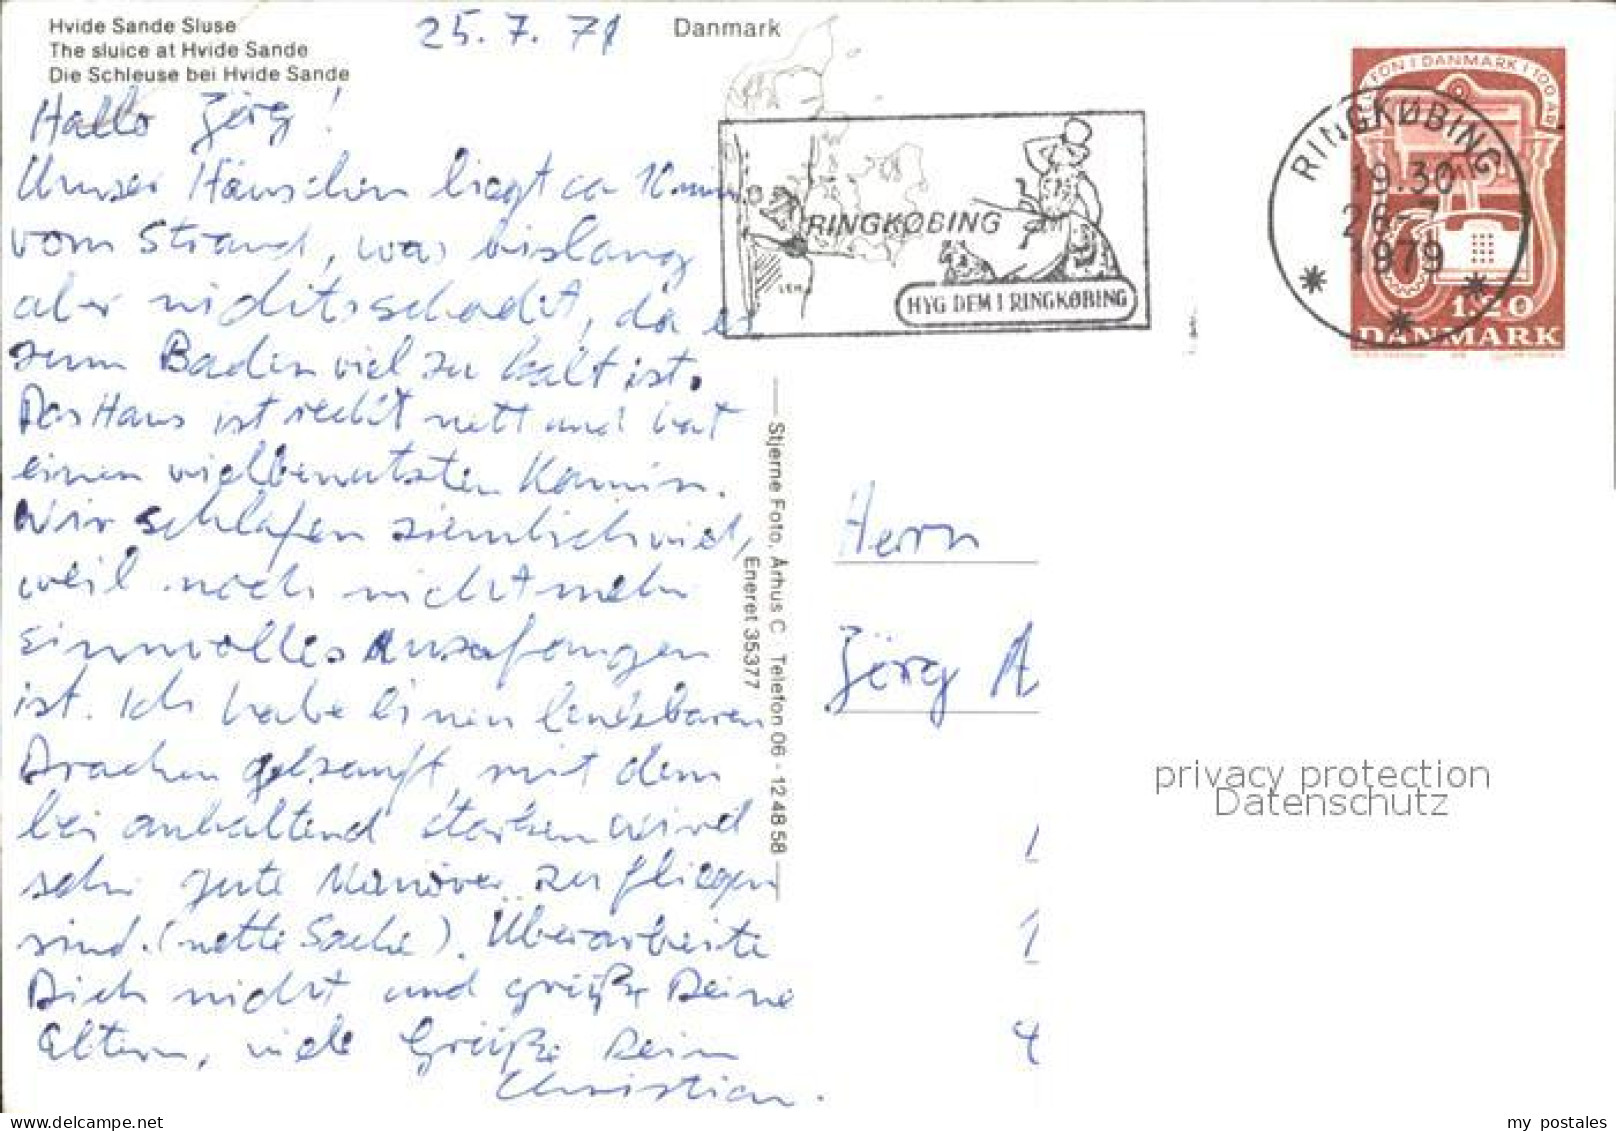 Hvide Sande Sluse
The sluice at Hvide Sande
Die Schleuse bei Hvide Sande
25.7.79
Danmark
Hallo Jörg!
Unser Häuschen liegt ca 10 min
vom Strand, was bislang
aber nichts schadet, da es
zum Baden viel zu kalt ist.
Das Haus ist recht nett und hat
einen vielbenutzten Kamin.
Wir schlafen ziemlich viel,
weil noch nicht mehr
sinnvolles anzufangen
ist. Ich habe einen lenkbaren
Drachen gekauft, mit dem
bei anhaltend starkem Wind
sehr gute Manöver zu fliegen
sind. (nette Sache). Überarbeite
Dich nicht und grüße Deine
Eltern, viele Grüße Dein
Christian.
RINGKØBING
HYG DEM I RINGKØBING
TELEFON I DANMARK I 100 ÅR
RINGKØBING
19.30
26-7
1979
1.20
DANMARK
Stjerne Foto, Århus C Telefon 06 - 12 48 58
Eneret 35377
Herrn
Jörg A
1
1
4
privacy protection
Datenschutz
my postales